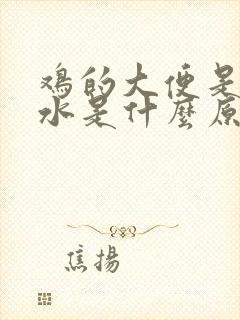 鸡的大便是
水是什麼原
焦揚